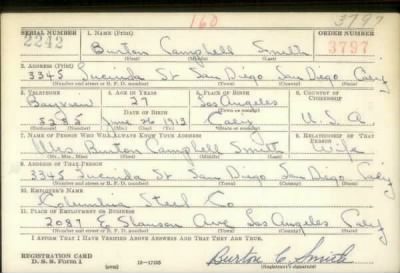 160
3797
SERIAL NUMBER 1. NAME (Print) ORDER NUMBER
2242 Burton Campbell Smith 3797
(First) (Middle) (Last)
2. ADDRESS (Print)
3345 Lucinda St San Diego San Diego Calif
(Number and street or R. F. D. number) (Town) (County) (State)
3. TELEPHONE 4. AGE IN YEARS 5. PLACE OF BIRTH 6. COUNTRY OF CITIZENSHIP
Bayview 27 Los Angeles
DATE OF BIRTH (Town or county)
June 26 1913 Calif U.S.A.
(Exchange) (Number) (Mo.) (Day) (Yr.) (State or country)
7. NAME OF PERSON WHO WILL ALWAYS KNOW YOUR ADDRESS 8. RELATIONSHIP OF THAT PERSON
Mrs Burton Campbell Smith Wife
(Mr., Mrs., Miss) (First) (Middle) (Last)
9. ADDRESS OF THAT PERSON
3345 Lucinda St San Diego San Diego Calif
(Number and street or R. F. D. number) (Town) (County) (State)
10. EMPLOYER'S NAME
Columbia Steel Co
11. PLACE OF EMPLOYMENT OR BUSINESS
2087 E Slauson Ave Los Angeles Calif
(Number and street or R. F. D. number) (Town) (County) (State)
I AFFIRM THAT I HAVE VERIFIED ABOVE ANSWERS AND THAT THEY ARE TRUE.
REGISTRATION CARD
D. S. S. Form 1 (over) 16-17105 Burton C Smith
(Registrant's signature)